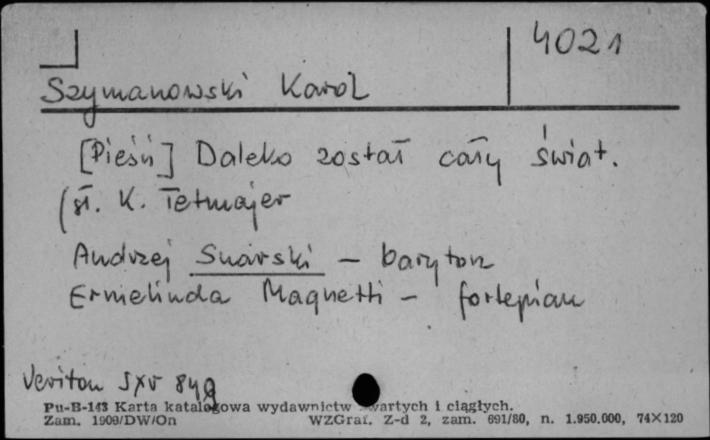 4021
Szymanowski Karol
[Pieśń] Daleko został cały świat.
(sł. K. Tetmajer
Andrzej Snarski – baryton
Ermelinda Magnetti – fortepian
Veriton SXV 849
Pu-B-143 Karta katalogowa wydawnictw zwartych i ciągłych.
Zam. 1909/DW/On WZGraf. Z-d 2, zam. 691/80, n. 1.950.000, 74X120